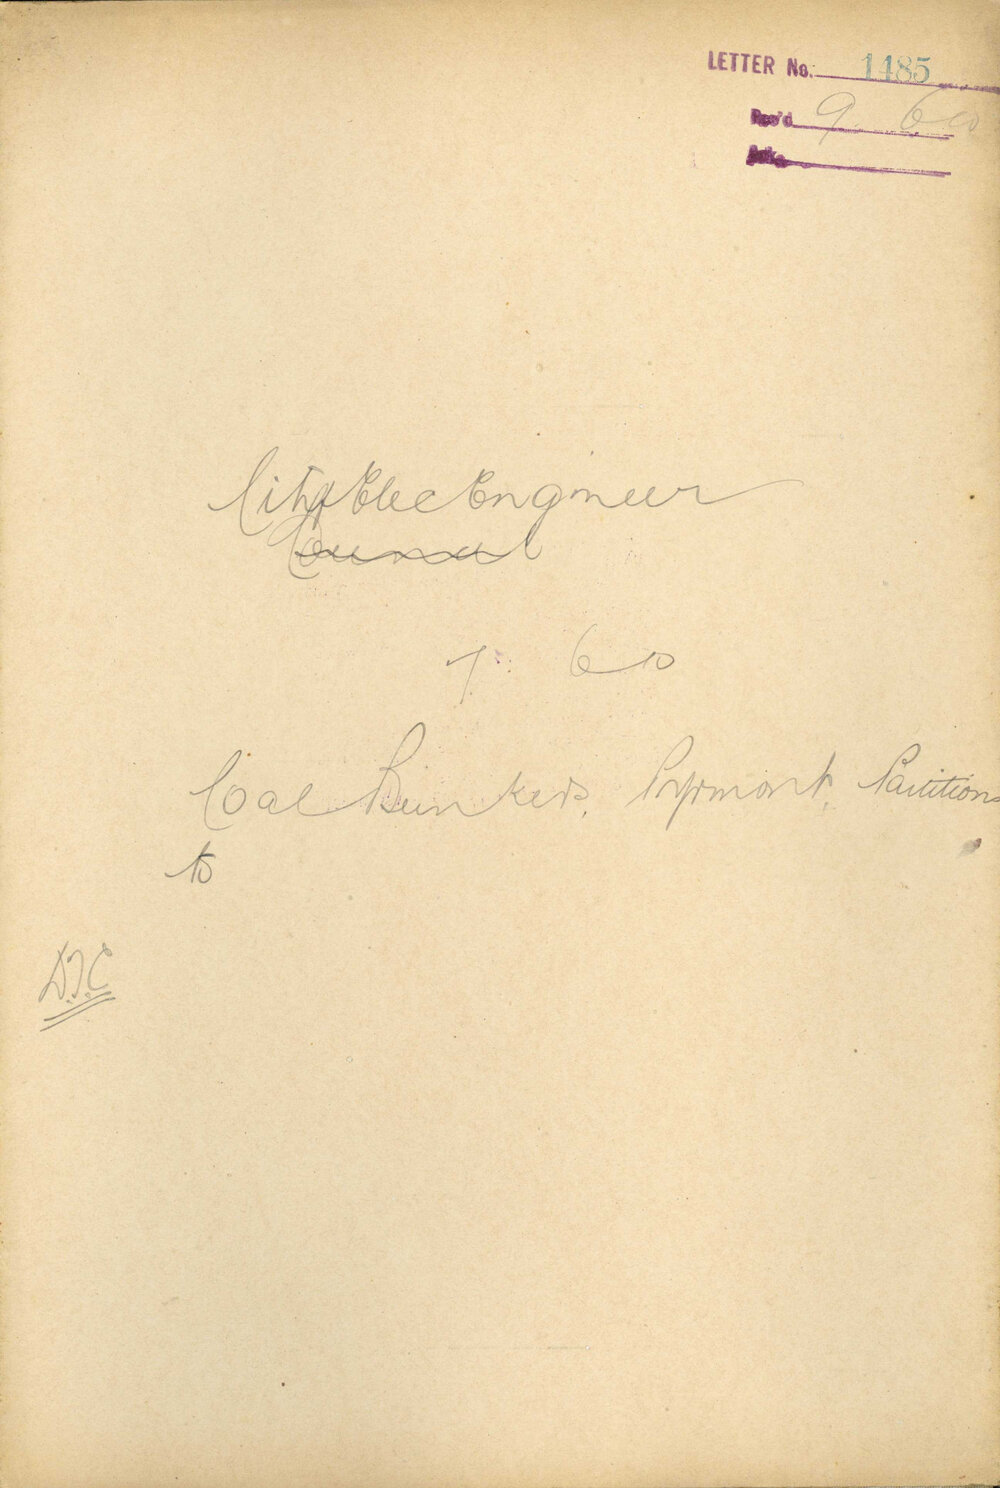 LETTER No. 1485
Rec'd 9. 6 10
Ack.
City Elec Engineer
Council
7. 6 10
Coal Bunkers, Pyrmont, Partitions
to
D.T.C